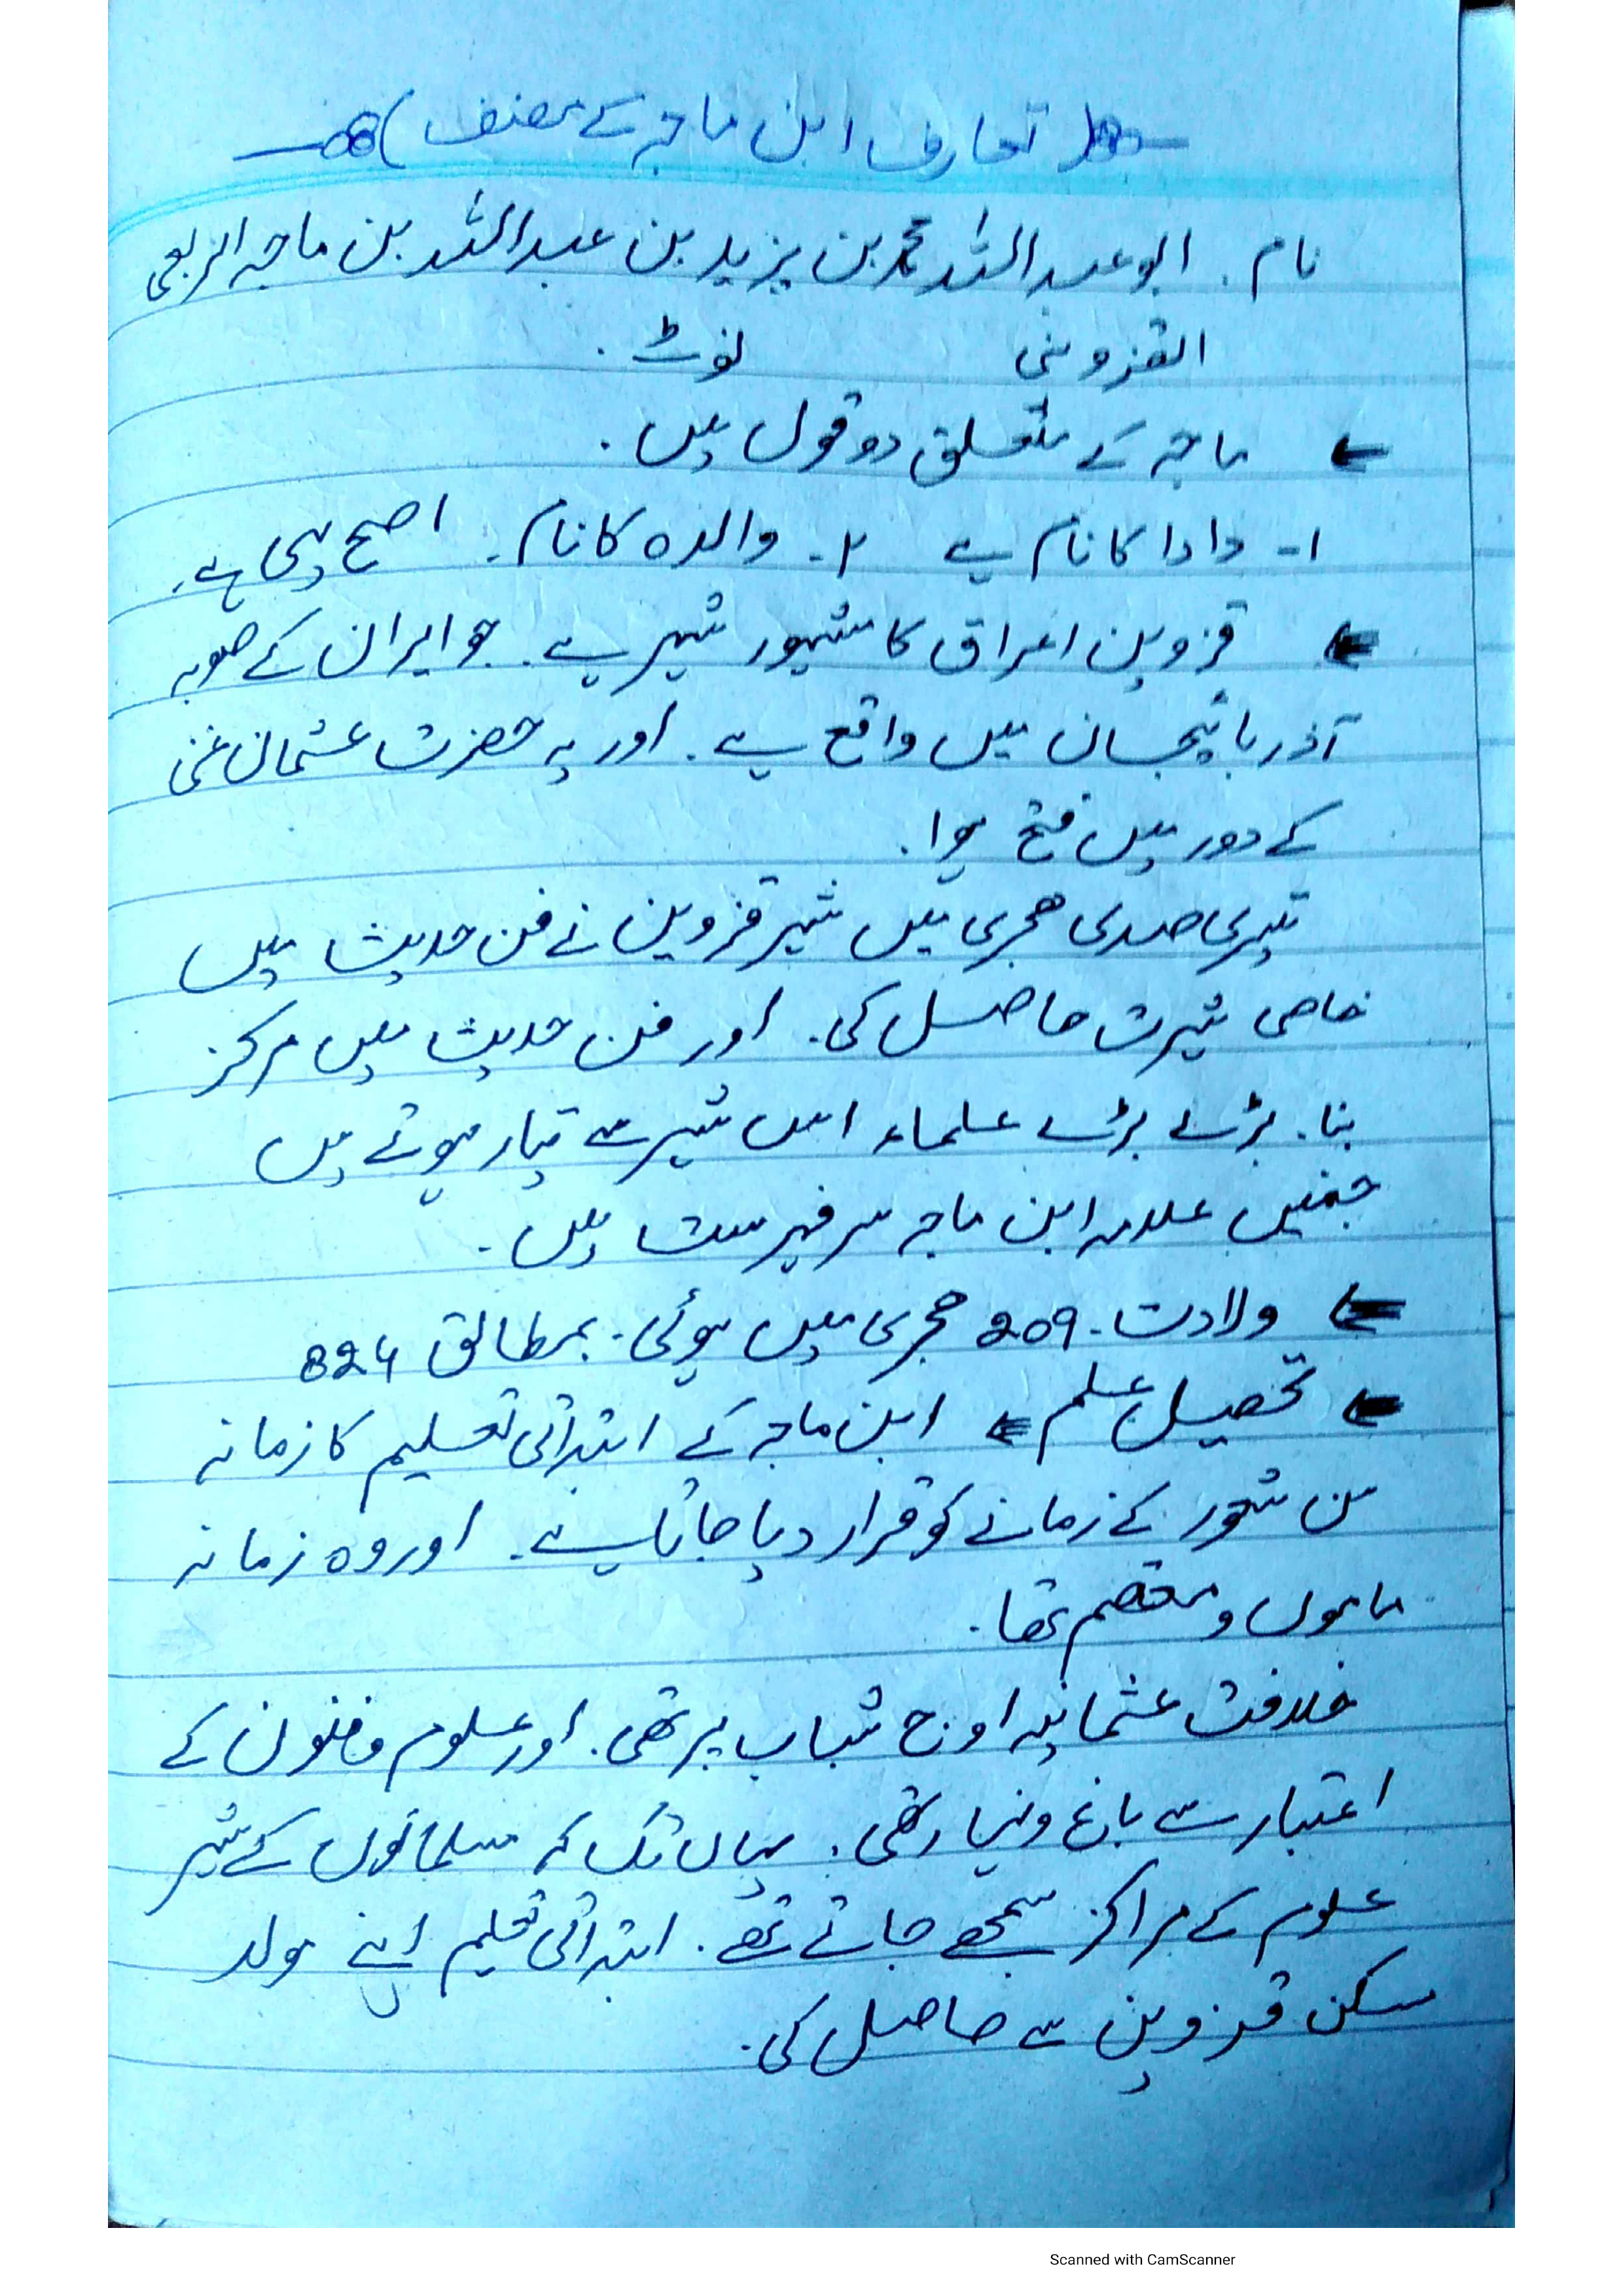 تعارف ابن ماجہ کے مصنف
نام . ابو عبد اللہ محمد بن یزید بن عبد اللہ بن ماجہ الربعی
القزوینی نوٹ .
ماجہ کے متعلق دو قول ہیں .
۱- دادا کا نام ہے ۲- والدہ کا نام . اصح یہی ہے .
قزوین اعراق کا مشہور شہر ہے . جو ایران کے صوبہ
آذربائیجان میں واقع ہے . اور یہ حضرت عثمان غنی
کے دور میں فتح ہوا .
تیسری صدی ھجری میں شہر قزوین نے فن حدیث میں
خاصی شہرت حاصل کی . اور فن حدیث میں مرکز
بنا . بڑے بڑے علماء اس شہر سے تیار ہوئے ہیں
جنمیں علامہ ابن ماجہ سر فہرست ہیں -
ولادت - 209 ھجری میں ہوئی - بمطابق 824
تحصیل علم ابن ماجہ کے ابتدائی تعلیم کا زمانہ
سن شعور کے زمانے کو قرار دیا جاتا ہے . اور وہ زمانہ
ماموں و معتصم تھا .
خلافت عثمانیہ اوج شباب پر تھی . اور علوم و فنون کے
اعتبار سے باغ و بہار تھی . یہاں تک کہ مسلمانوں کے شہر
علوم کے مراکز سمجھے جاتے تھے . ابتدائی تعلیم اپنے مولد
مسکن قزوین سے حاصل کی .
Scanned with CamScanner